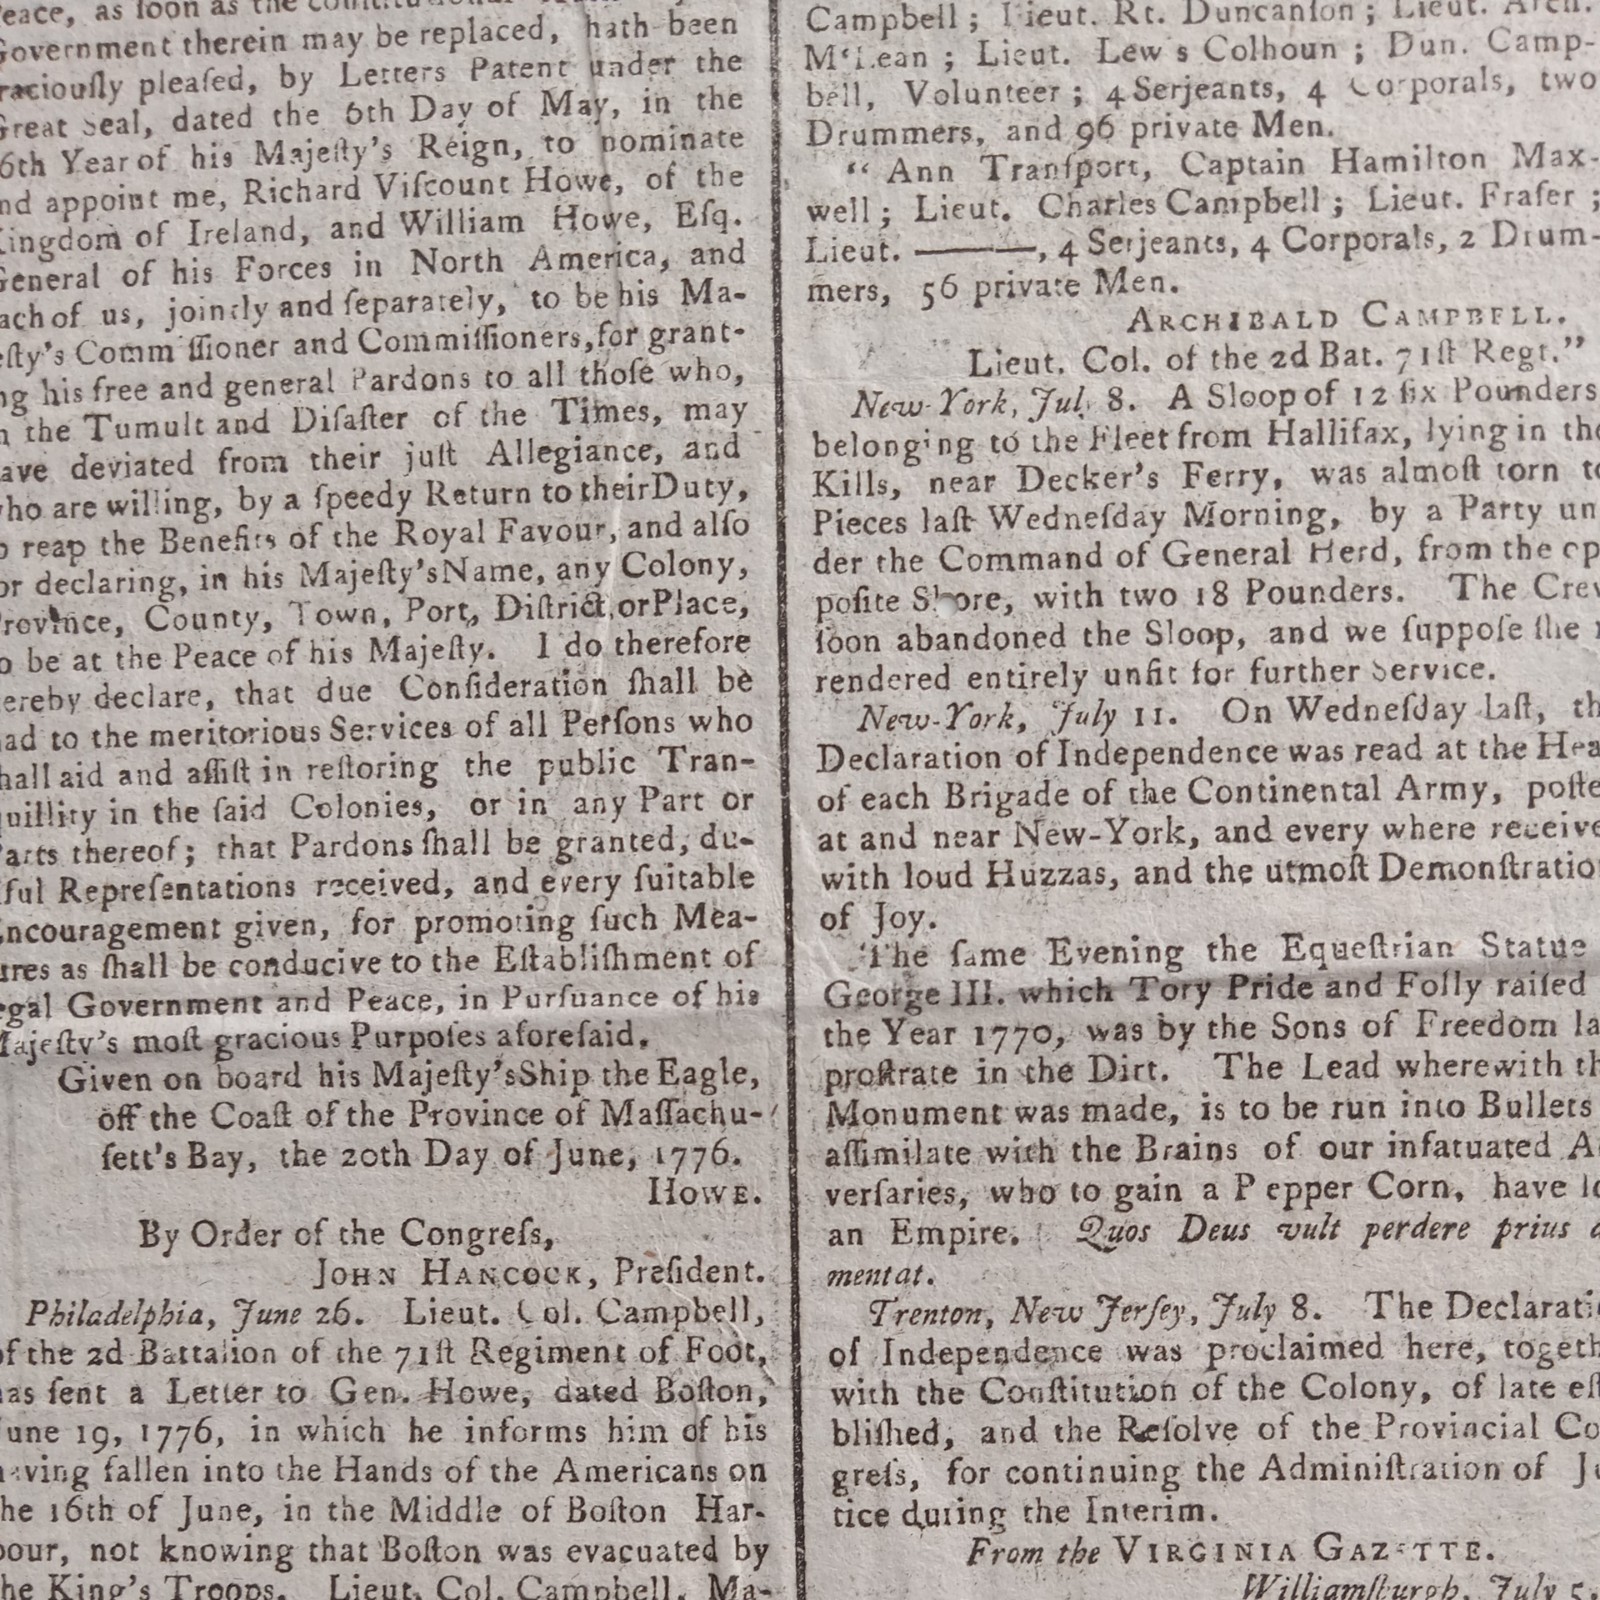 eace, as ſoon as the conſtitutional
Government therein may be replaced, hath been
raciouſly pleaſed, by Letters Patent under the
Great Seal, dated the 6th Day of May, in the
6th Year of his Majeſty's Reign, to nominate
nd appoint me, Richard Viſcount Howe, of the
Kingdom of Ireland, and William Howe, Eſq.
General of his Forces in North America, and
ach of us, jointly and ſeparately, to be his Ma-
eſty's Comm ſſioner and Commiſſioners, for grant-
ng his free and general Pardons to all thoſe who,
n the Tumult and Diſaſter of the Times, may
ave deviated from their juſt Allegiance, and
who are willing, by a ſpeedy Return to their Duty,
o reap the Benefits of the Royal Favour, and alſo
or declaring, in his Majeſty's Name, any Colony,
Province, County, Town, Port, Diſtrict, or Place,
o be at the Peace of his Majeſty. I do therefore
ereby declare, that due Conſideration ſhall be
had to the meritorious Services of all Perſons who
hall aid and aſſiſt in reſtoring the public Tran-
quillity in the ſaid Colonies, or in any Part or
Parts thereof; that Pardons ſhall be granted, du-
iful Repreſentations received, and every ſuitable
Encouragement given, for promoting ſuch Mea-
ures as ſhall be conducive to the Eſtabliſhment of
egal Government and Peace, in Purſuance of his
Majeſty's moſt gracious Purpoſes aforeſaid.
Given on board his Majeſty's Ship the Eagle,
off the Coaſt of the Province of Maſſachu-
ſett's Bay, the 20th Day of June, 1776.
HOWE.
By Order of the Congreſs,
JOHN HANCOCK, Preſident.
Philadelphia, June 26. Lieut. Col. Campbell,
of the 2d Battalion of the 71ſt Regiment of Foot,
has ſent a Letter to Gen. Howe, dated Boſton,
June 19, 1776, in which he informs him of his
having fallen into the Hands of the Americans on
the 16th of June, in the Middle of Boſton Har-
bour, not knowing that Boſton was evacuated by
the King's Troops. Lieut. Col. Campbell, Ma-
Campbell; Lieut. Rt. Duncanſon; Lieut. Arch.
M'Lean; Lieut. Lew s Colhoun; Dun. Camp-
bell, Volunteer; 4 Serjeants, 4 Corporals, two
Drummers, and 96 private Men.
"Ann Tranſport, Captain Hamilton Max-
well; Lieut. Charles Campbell; Lieut. Fraſer;
Lieut. ———, 4 Serjeants, 4 Corporals, 2 Drum-
mers, 56 private Men.
ARCHIBALD CAMPBELL.
Lieut. Col. of the 2d Bat. 71ſt Regt."
New-York, Jul. 8. A Sloop of 12 ſix Pounders
belonging to the Fleet from Hallifax, lying in the
Kills, near Decker's Ferry, was almoſt torn to
Pieces laſt Wedneſday Morning, by a Party un
der the Command of General Herd, from the op
poſite Shore, with two 18 Pounders. The Crew
ſoon abandoned the Sloop, and we ſuppoſe ſhe
rendered entirely unfit for further Service.
New-York, July 11. On Wedneſday laſt, th
Declaration of Independence was read at the Hea
of each Brigade of the Continental Army, poſte
at and near New-York, and every where receive
with loud Huzzas, and the utmoſt Demonſtratio
of Joy.
The ſame Evening the Equeſtrian Statue
George III. which Tory Pride and Folly raiſed
the Year 1770, was by the Sons of Freedom la
proſtrate in the Dirt. The Lead wherewith th
Monument was made, is to be run into Bullets
aſſimilate with the Brains of our infatuated A
verſaries, who to gain a Pepper Corn, have lo
an Empire. Quos Deus vult perdere prius d
mentat.
Trenton, New Jerſey, July 8. The Declarati
of Independence was proclaimed here, togeth
with the Conſtitution of the Colony, of late eſt
bliſhed, and the Reſolve of the Provincial Co
greſs, for continuing the Adminiſtration of Ju
tice during the Interim.
From the VIRGINIA GAZETTE.
Williamſburgh, July 5.